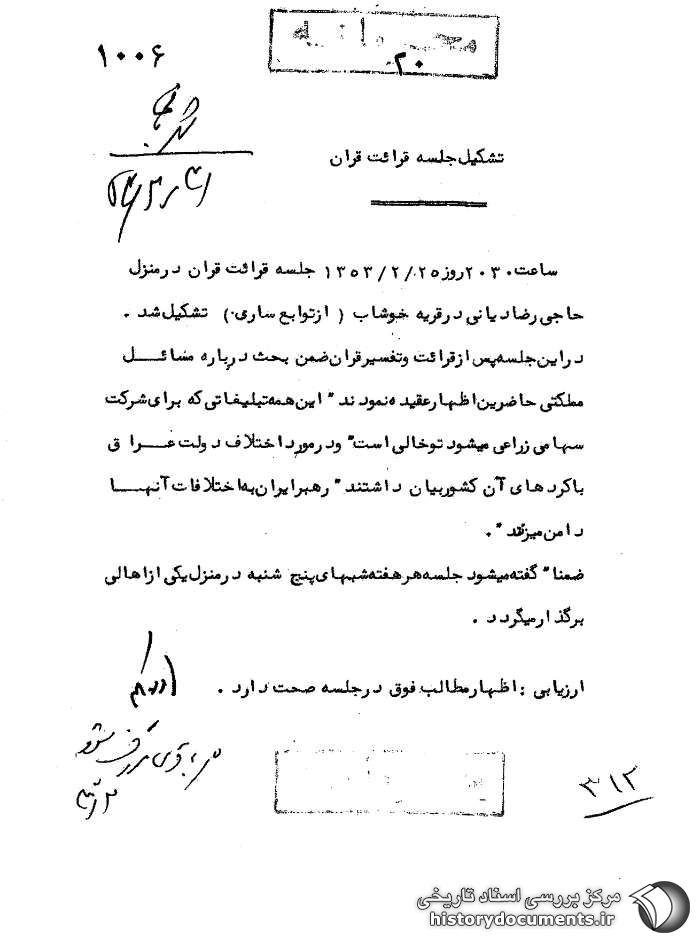 محرمانه
۲۰
۱۰۰۶
تشکیل جلسه قرائت قران
ساعت ۲۰۳۰ روز ۱۳۵۳/۲/۲۵ جلسه قرائت قران در منزل
حاجی رضا دیانی در قریه خوشاب ( از توابع ساری ) تشکیل شد .
در این جلسه پس از قرائت و تفسیر قران ضمن بحث در باره مسائـــل
مملکتی حاضرین اظهار عقیده نمودند " این همه تبلیغاتی که برای شرکت
سهامی زراعی میشود توخالی است " و در مورد اختلاف دولت عـــراق
با کردهای آن کشور بیان داشتند " رهبر ایران به اختلافات آنهـــا
دامن میزند " .
ضمنا " گفته میشود جلسه هر هفته شبهای پنج شنبه در منزل یکی از اهالی
برگذار میگردد .
ارزیابی : اظهار مطالب فوق در جلسه صحت دارد .
۳۱۲
مرکز بررسی اسناد تاریخی
historydocuments.ir